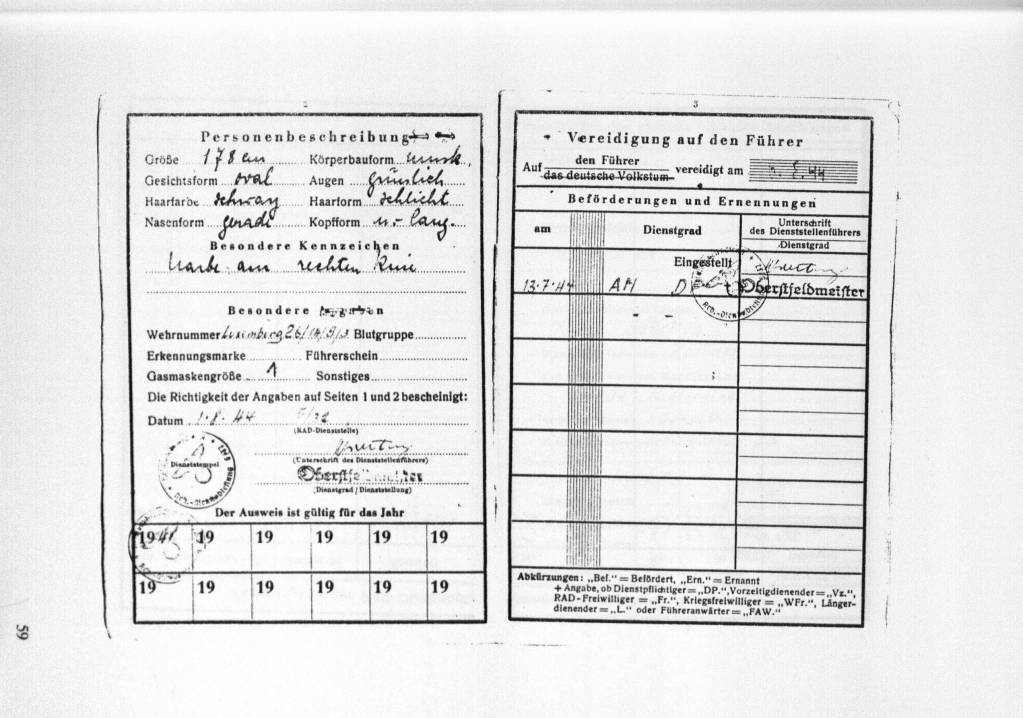 2
Personenbeschreibung
Größe 178 cm Körperbauform musk.
Gesichtsform oval Augen grünlich
Haarfarbe schwarz Haarform schlicht
Nasenform gerade Kopfform m.-lang.
Besondere Kennzeichen
Narbe am rechten Knie
Besondere
Wehrnummer Luxemburg 26/14/9/3 Blutgruppe
Erkennungsmarke Führerschein
Gasmaskengröße 1 Sonstiges
Die Richtigkeit der Angaben auf Seiten 1 und 2 bescheinigt:
Datum 1.8.44
(RAD-Dienststelle)
Dienststempel
(Unterschrift des Dienststellenführers)
Oberstfeldmeister
(Dienstgrad / Dienststellung)
Der Ausweis ist gültig für das Jahr
19 19 19 19 19 19
19 19 19 19 19 19
3
Vereidigung auf den Führer
Auf den Führer
das deutsche Volkstum vereidigt am
Beförderungen und Ernennungen
am Dienstgrad Unterschrift
des Dienststellenführers
Dienstgrad
Eingestellt
13.7.44 AM Oberstfeldmeister
Abkürzungen: „Bef." = Befördert, „Ern." = Ernannt
+ Angabe, ob Dienstpflichtiger = „DP.", Vorzeitigdienender = „Vz.",
RAD-Freiwilliger = „Fr.", Kriegsfreiwilliger = „WFr.", Länger-
dienender = „L." oder Führeranwärter = „FAW."
59